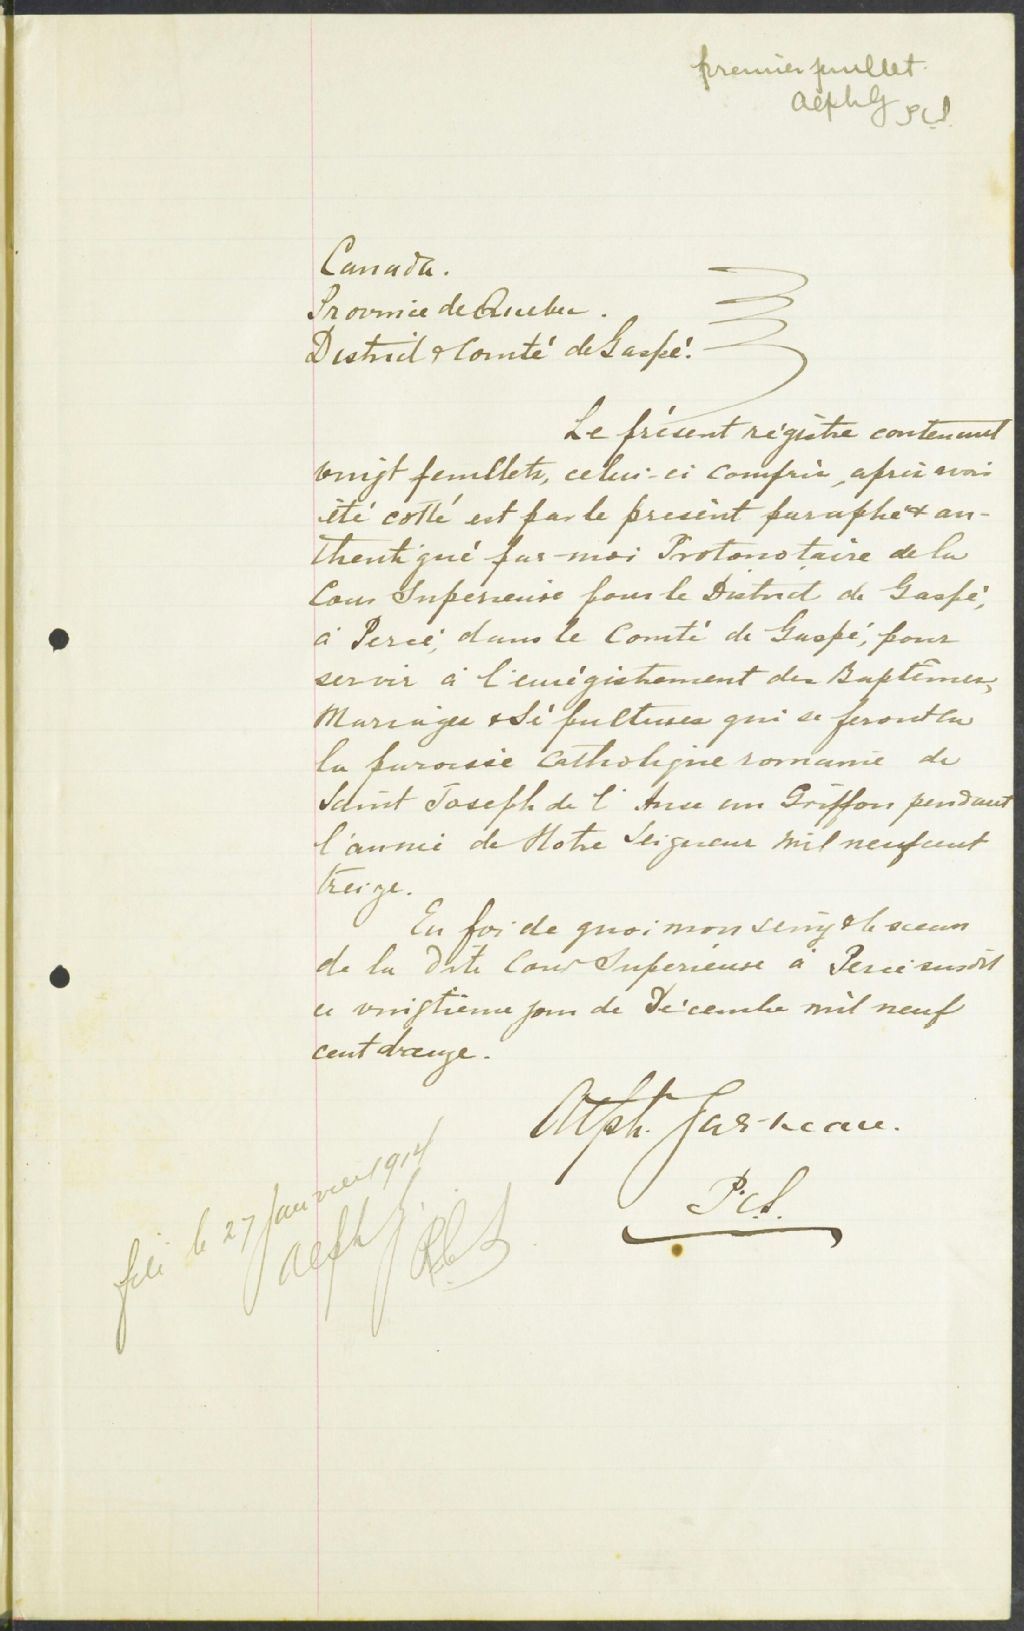 premier feuillet.
Alph G P.C.S.
Canada.
Province de Quebec.
District & Comté de Gaspé.
Le présent régistre contenant
vingt feuillets, celui-ci compris, après avoir
été cotté est par le present paraphé & au-
thentiqué par-moi Protonotaire de la
Cour Superieure pour le District de Gaspé,
à Percé, dans le Comté de Gaspé, pour
servir à l'enrégistrement des Baptêmes,
Mariages & Sépultures qui se feront en
la paroisse Catholique romaine de
Saint Joseph de l'Anse au Griffon pendant
l'année de Notre Seigneur mil neuf cent
treize.
En foi de quoi mon seing & le sceau
de la dite Cour Superieure à Percé susdit
ce vingtième jour de Décembre mil neuf
cent douze.
Alph. Garneau.
P.C.S.
filé le 27 Janvier 1914
Alph G. P.C.S